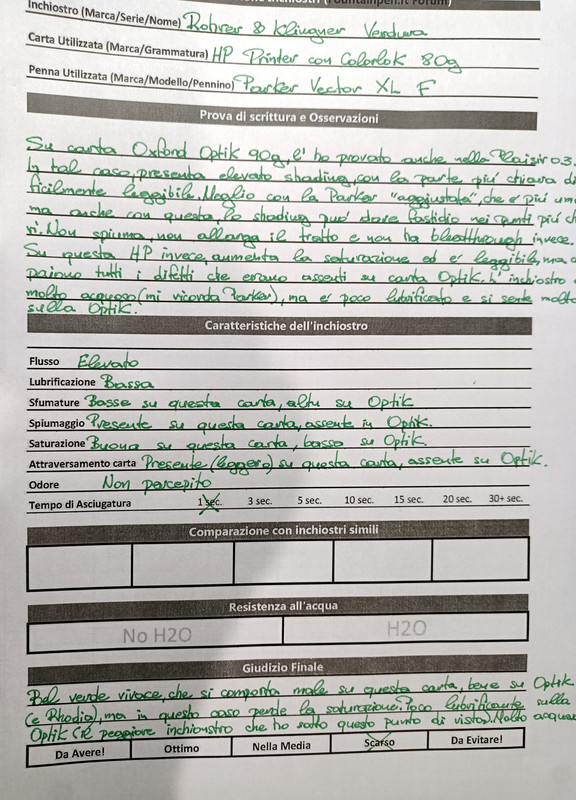 Inchiostro (Marca/Serie/Nome) Rohrer & Klingner Verdura
Carta Utilizzata (Marca/Grammatura) HP Printer con Colorlok 80g
Penna Utilizzata (Marca/Modello/Pennino) Parker Vector XL F
Prova di scrittura e Osservazioni
Su carta Oxford Optik 90g, l'ho provato anche nella Plaisir 03.
In tal caso, presenta elevato shading, con la parte piu' chiara di
ficilmente leggibile. Meglio con la Parker "aggiustata", che e' piu' um
ma anche con questa, lo shading puo' dare fastidio nei punti piu' c
ri. Non spiuma, non allarga il tratto e non ha bleedthrough invece.
Su questa HP invece, aumenta la saturazione ed e' leggibile, ma
paiono tutti i difetti che erano assenti su carta Optik. L'inchiostro
molto acquoso (mi ricorda Parker), ma e' poco lubrificato e si sente molto
sulla Optik.
Caratteristiche dell'inchiostro
Flusso Elevato
Lubrificazione Bassa
Sfumature Basse su questa carta, alte su Optik
Spiumaggio Presente su questa carta, assente in Optik.
Saturazione Buona su questa carta, bassa su Optik.
Attraversamento carta Presente (leggero) su questa carta, assente su Optik.
Odore Non percepito
Tempo di Asciugatura 1 sec. 3 sec. 5 sec. 10 sec. 15 sec. 20 sec. 30+ sec.
Comparazione con inchiostri simili
Resistenza all'acqua
No H2O H2O
Giudizio Finale
Bel verde vivace, che si comporta male su questa carta, bene su Optik
(e Rhodia), ma in questo caso perde la saturazione. Poco lubrificante sulla
Optik (il peggiore inchiostro che ho sotto questo punto di vista). Molto acquo
Da Avere! Ottimo Nella Media Scarso Da Evitare!